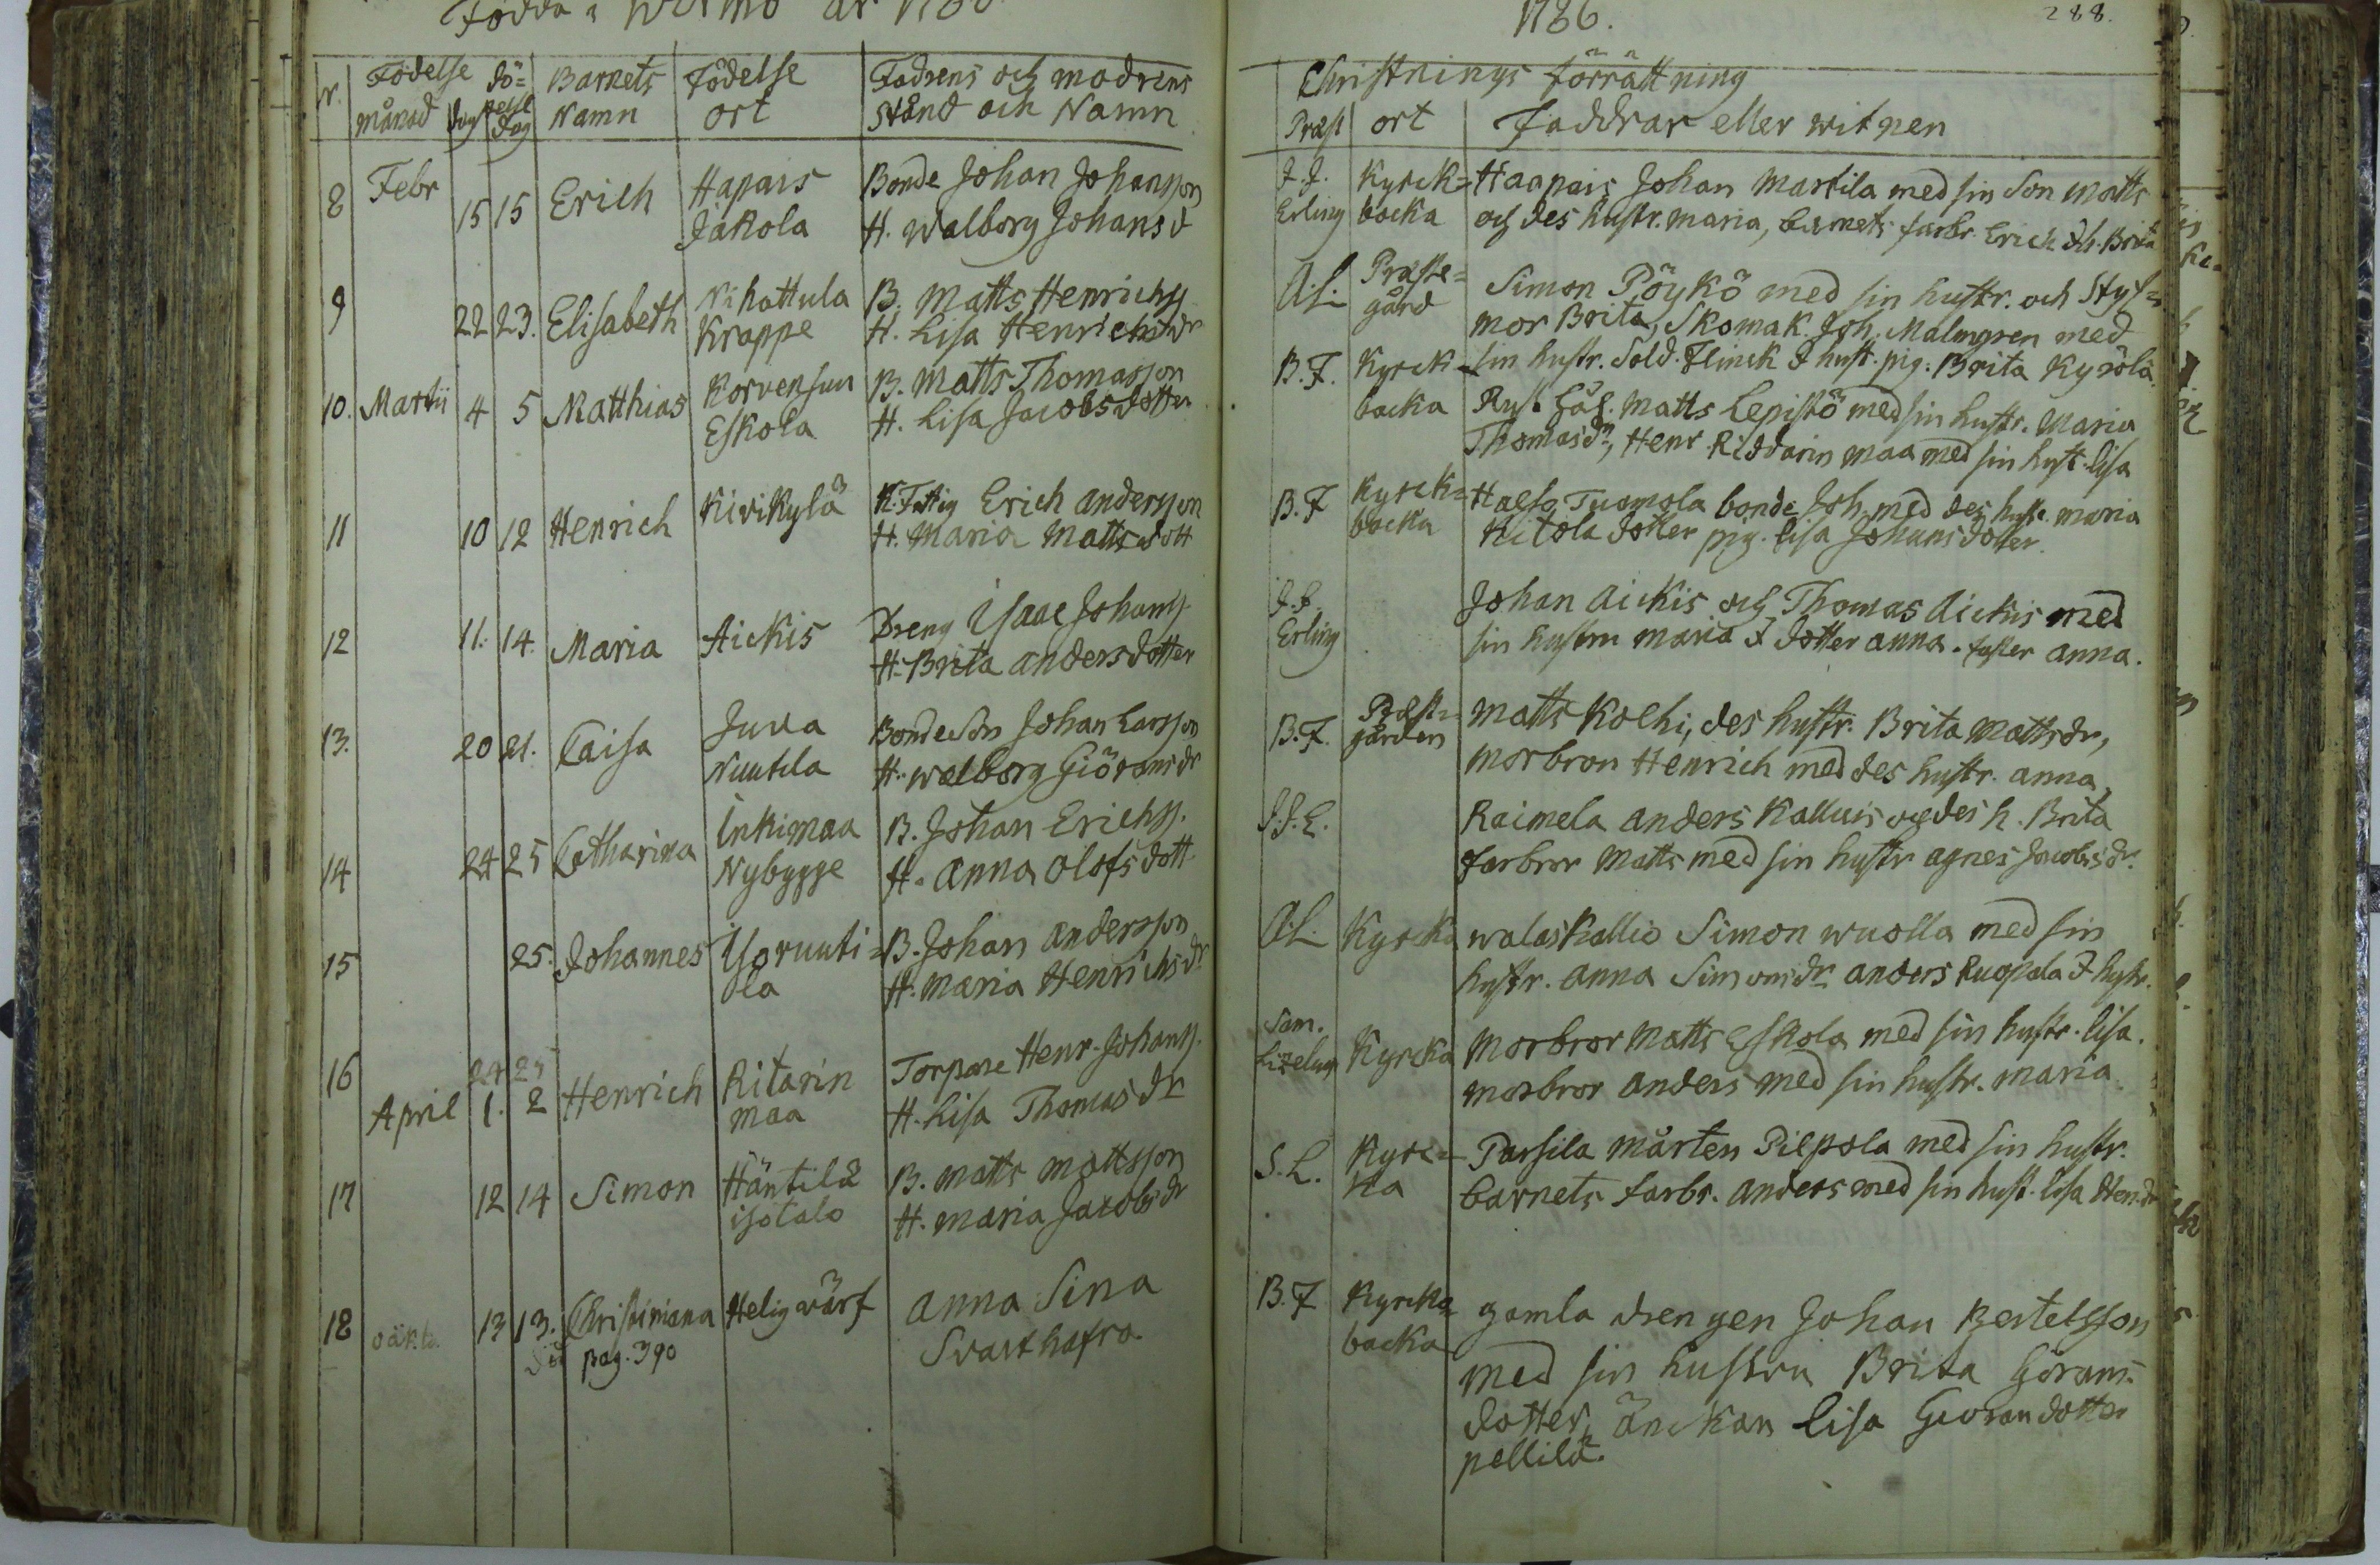 Födda i Wirmo år 1786
1786.
288.
Nr.
Födelse
månad
dag
Dö=
pelse
dag
Barnets
Namn
Födelse
ort
Fadrens och modrens
stånd och Namn
Christnings förrättning
Præst
ort
Faddrar eller witnen
8 Febr 15 15 Erich
Hapais
Jakola
Bonde Johan Johansson
H. Walborg Johansd
J. J.
Erling
Kyrck=
backa
Haapais Johan Martila med sin Son Matts
och des hustr. Maria, barnets farbr. Erich & h. Brita
9 22 23. Elisabeth
Nihattula
Krappe
B. Matts Henrichss
H. Lisa Henrichsdr
A.L.
Præste=
gård
Simon Pöykö med sin hustr. och Styf=
mor Brita, Skomak. Joh. Malmgren med
sin hustr. Sold. Flinck & hust. pig. Brita Kyrölä
10. Martii 4 5 Matthias
Korvensuu
Eskola
B. Matts Thomasson
H. Lisa Jacobsdotter
B. F.
Kyrck=
backa
Matts Lepistö med sin hustr. Maria
Thomasdr, Henr. Riddarin maa med sin hust. Lisa
11 10 12 Henrich
Kivikylä
K. Fattig Erich andersson
H. Maria Mattsdott
B. F
Kyrck=
backa
Tuomola bonde Joh. med des hust. maria
Kitola dotter pig. Lisa Johansdotter.
12 11. 14. Maria
Aickis
Dreng Isaac Johanss
H. Brita andersdotter
J. J.
Erling
Johan Aickis och Thomas Aickis med
sin hustru maria & dotter anna. faster anna.
13. 20 21. Caisa
Juva
Nuutila
Bondeson Johan Larsson
H. walborg Giöransdr
B. F.
Præst=
gården
Matts Kolhi, des hustr. Brita Mattsdr,
morbron Henrich med des hustr. anna,
14 24 25 Catharina
Inkimaa
Nybygge
B. Johan Erichss.
H. Anna Olofsdott
J. J. E.
Raimela anders Kalluis och des h. Brita
farbror Matts med sin hustr agnes Jacobsdr.
15 25. Johannes
Yoruuti=
la
B. Johan andersson
H. Maria Henrichsdr
A.L.
Kyrcka
walaskallio Simon wuolla med sin
hustr. anna Simonsdr anders Ruopola & hustr.
16 24 25
April 1. 2 Henrich
Ritarin
maa
Torpare Henr. Johanss.
H. Lisa Thomasdr
Sam.
Lizelius
Kyrcka
Morbror Matts Eskola med sin hustr. Lisa.
morbror anders med sin hustr. maria
17 12 14 Simon
Häntilä
isotalo
B. Matts Mattsson
H. maria Jacobsdr
S. L.
Kyrc=
ka
Parsila Mårten Pilpola med sin hustr.
barnets farbr. anders med sin hust. Lisa Hen.dr
18 oäkta. 13 13. Christiniana
pag. 390
Helig wärf
Anna Sina
Svarthafra.
B. F
Kyrcka
backa
gamla drengen Johan Bertelsson
med sin hustru Brita Görans-
dotter, änckan Lisa Giörandotter
pellilä.